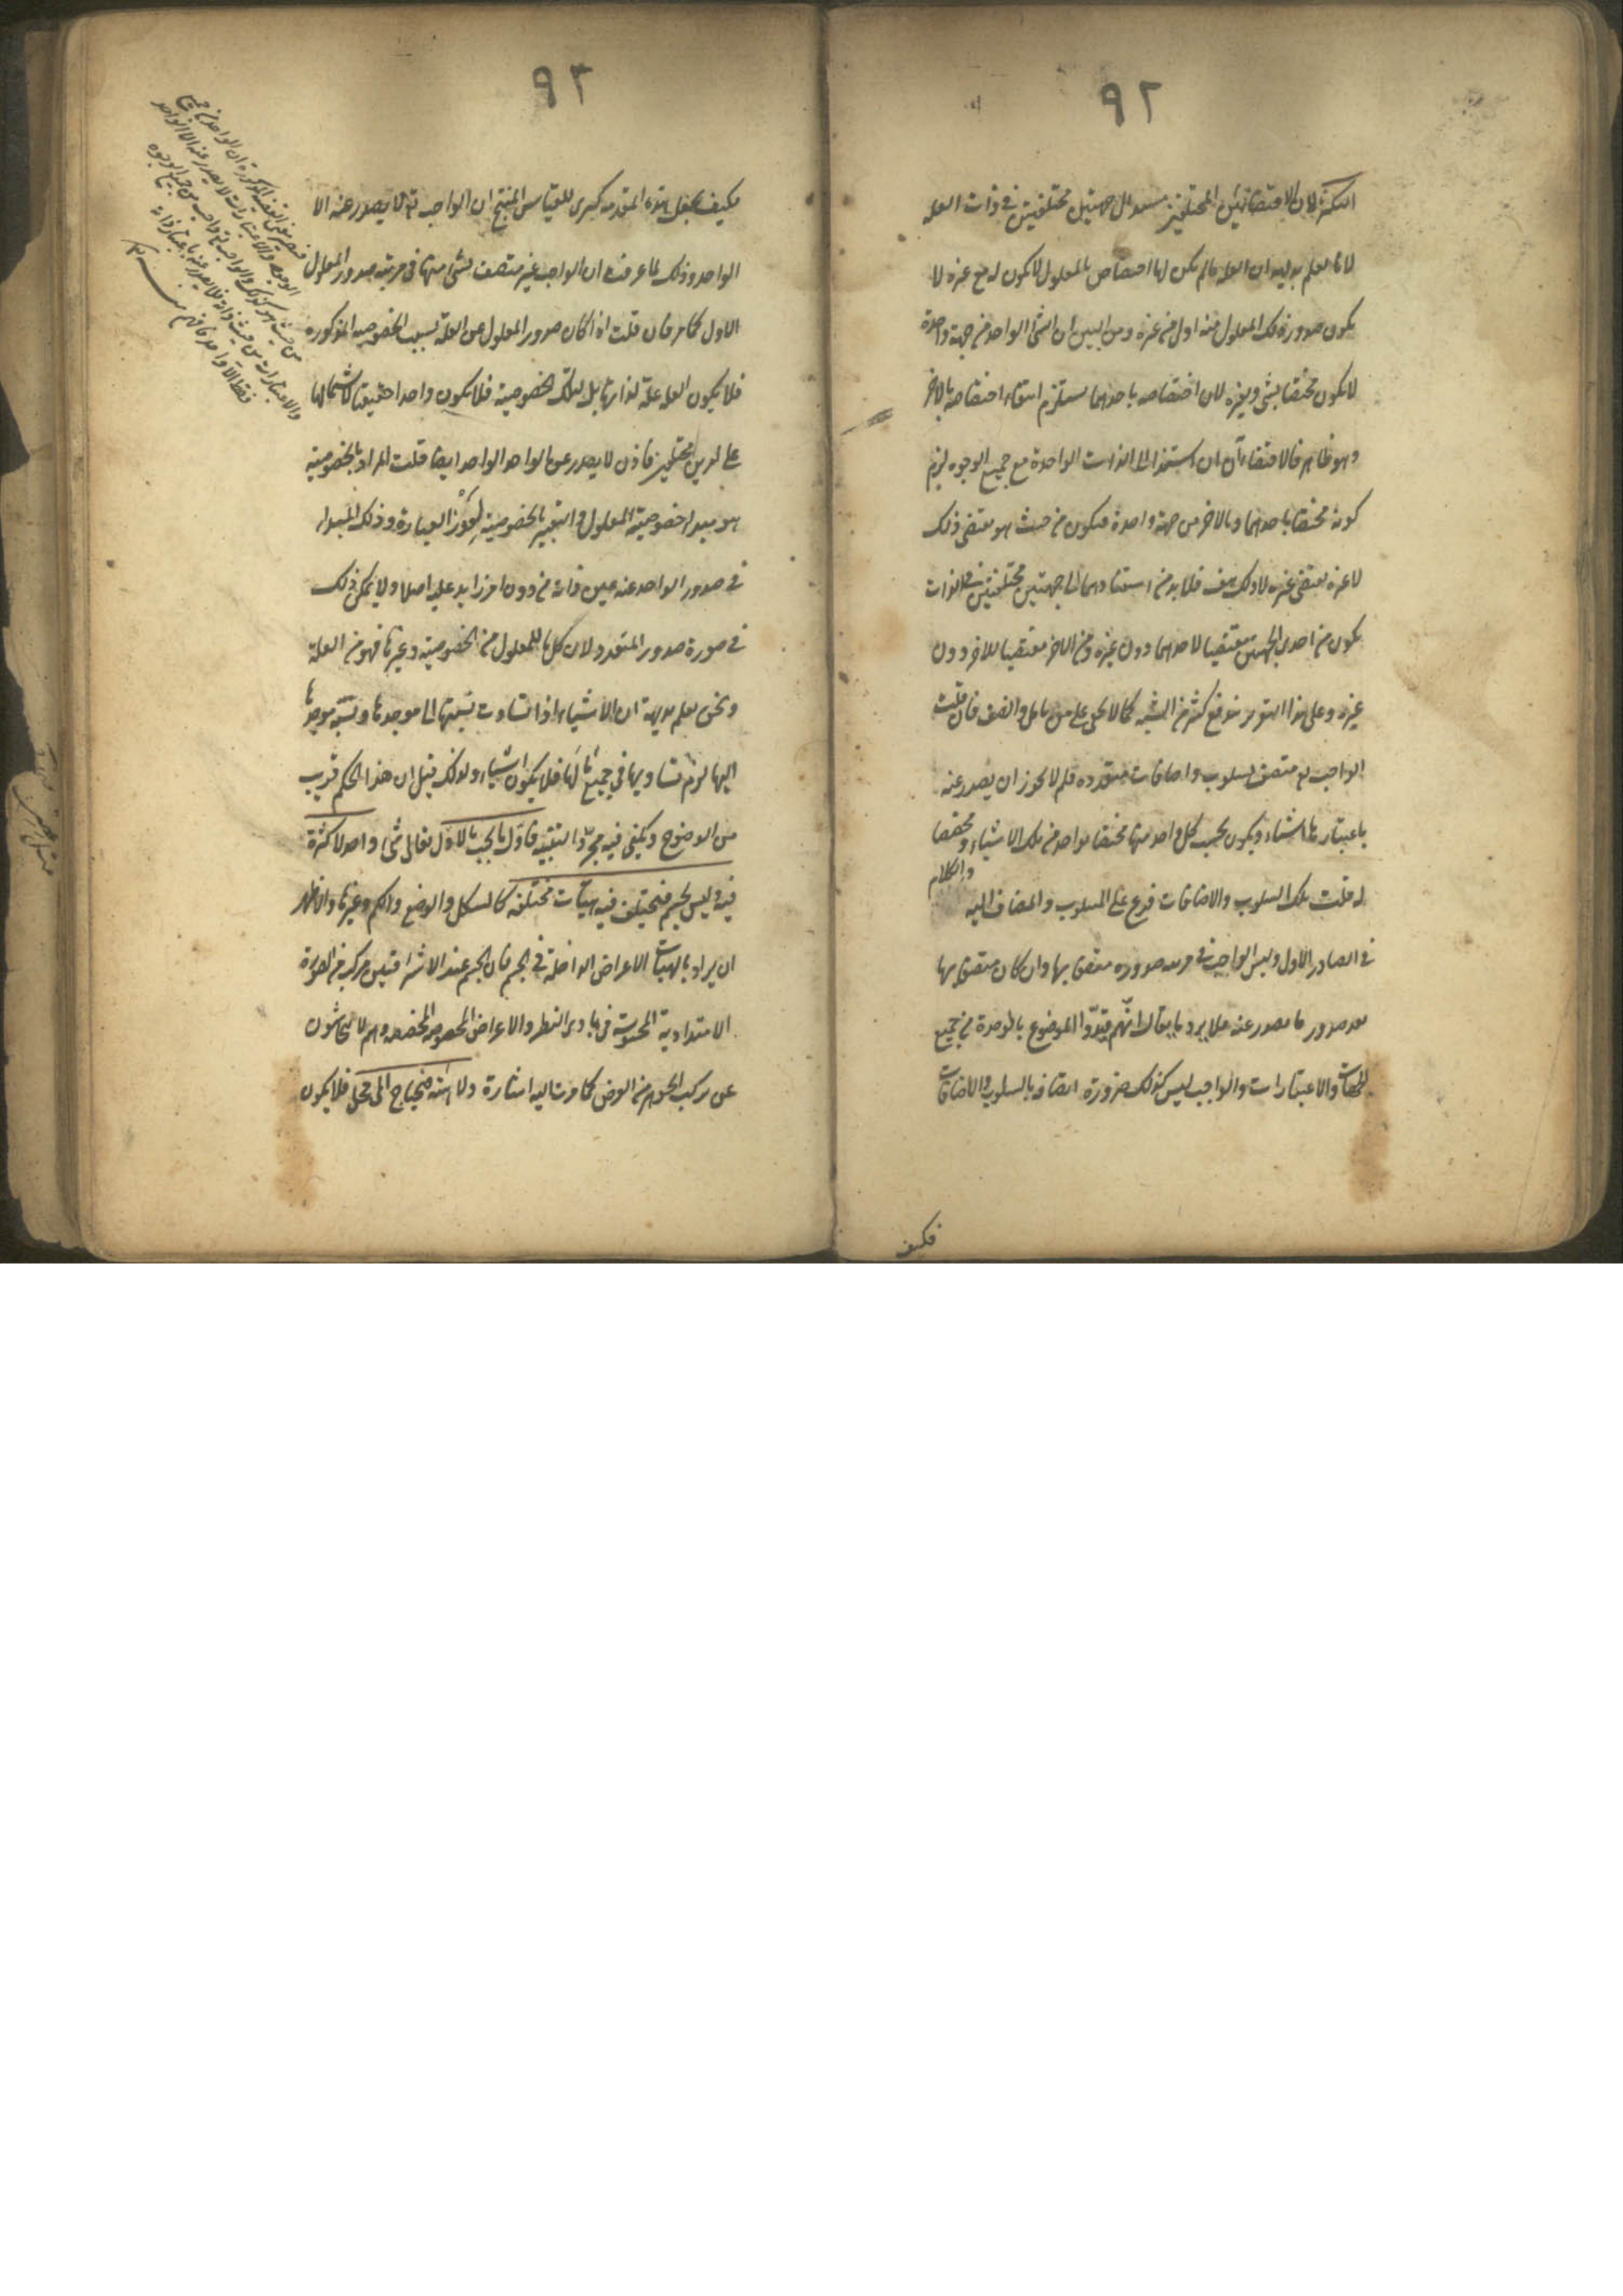 ٩٢
الكثرة لان الاقتضائين المختلفين مبدءا الى جهتين مختلفتين في ذات العلة
لانا نعلم بديهة ان العلة ما لم يكن لها اختصاص بالمعلول لا يكون له مع غيره لا
يكون صدور ذلك المعلول منه اولى من غيره ومن البين ان الشئ الواحد من جهة واحدة
لا يكون مختصا بشئ وبغيره لان اختصاصه باحدهما يستلزم انتفاء اختصاصه بالاخر
وهو ظاهر فالاقتضاءآن ان استندا الى الذات الواحدة مع جميع الوجوه لزم
كونه مختصا باحدهما وبالاخر من جهة واحدة فيكون من حيث هو مقتضى ذلك
لا غيره يقتضى غيره لا ذلك هف فلا بد من استنادهما الى جهتين مختلفتين في الذات
يكون من احدى الجهتين مقتضيا لاحدهما دون غيره ومن الاخر مقتضيا للاخر دون
غيره وعلى هذا التقرير يندفع كثير من الشبه كما لا يخفى على من تامل وانصف فان قلت
الواجب له متصف بسلوب واضافات متعددة فلم لا يجوز ان يصدر عنه
باعتبارها اشياء ويكون بحسب كل واحد منها مختصا بواحد من تلك الاشياء ومختصا
له قلت تلك السلوب والاضافات فرع على المسلوب والمضاف اليه
والكلام
في الصادر الاول وليس الواجب في مرتبة صدوره متصفا بها وان كان متصفا بها
بعد صدور ما يصدر عنه فلا يرد ما يقال انهم قيدوا الموضوع بالوحدة من جميع
الجهات والاعتبارات والواجب ليس كذلك ضرورة اتصافه بالسلوب والاضافات
فكيف
٩٣
فكيف يجعل هذه المقدمة كبرى للقياس المنتج ان الواجب تع لا يصدر عنه الا
الواحد وذلك لما عرفت ان الواجب غير متصف بشئ منها في مرتبة صدور المعلول
الاول كما مر فان قلت اذا كان صدور المعلول عن العلة بسبب الخصوصية المذكورة
فلا يكون العلة علة لذاتها بل لتلك الخصوصية فلا يكون واحدا حقيقيا لاشتمالها
على امرين مختلفين فاذن لا يصدر عن الواحد الواحد ايضا قلت المراد بالخصوصية
هو مبدا خصوصية المعلول والتعبير بالخصوصية لعوز العبارة وذلك المبدا
في صدور الواحد عنه عين ذاته من دون امر زايد عليه اصلا ولا يمكن ذلك
في صورة صدور المتعدد لان كل ما للمعلول من الخصوصية وغيرها فهو من العلة
ونحن نعلم بديهة ان الاشياء اذا تساوت نسبتها الى موجدها ونسبة موجدها
اليها لزم تساويها في جميع ما لها فلا يكون اشياء ولذلك قيل ان هذا الحكم قريب
من الوضوح ويكفى فيه مجرد التنبيه فاول ما يجب بالاول تعالى شئ واحد لا كثرة
فيه وليس بجسم فيختلف فيه هيئات مختلفة كالشكل والوضع والكم وغيرها والاظهر
ان يراد بالهيئات الاعراض الداخلة في الجسم فان الجسم عند الاشراقيين مركب من الصورة
الامتدادية المحسوسة في بادى النظر والاعراض المخصوصة المخصصة وهم لا يتحاشون
عن تركب الجوهر من العرض كما مرت اليه اشارة ولا هيئة فيحتاج الى محل فلا يكون